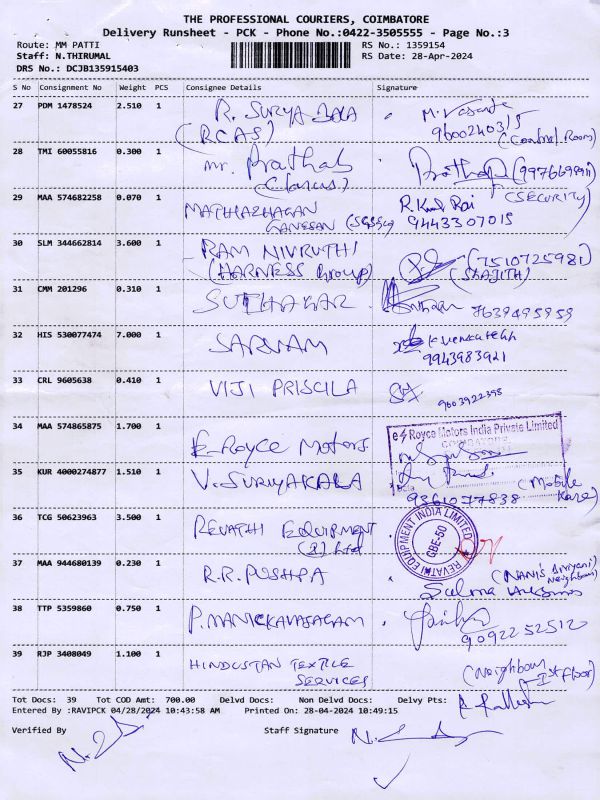 THE PROFESSIONAL COURIERS, COIMBATORE
Delivery Runsheet - PCK - Phone No.:0422-3505555 - Page No.:3
Route: MM PATTI
RS No.: 1359154
Staff: N.THIRUMAL
RS Date: 28-Apr-2024
DRS No.: DCJB135915403
S No Consignment No Weight PCS Consignee Details Signature
27 PDM 1478524 2.510 1 R. SURYA BALA
(RCAS)
9600240315
(Control Room)
28 TMI 60055816 0.300 1 Mr. Prathab
(Clarus)
Prathap
29 MAA 574682258 0.070 1 MATHIAZHAGAN
GANESAN
9443307015
(SECURITY)
30 SLM 344662814 3.600 1 RAM NIVRUTHI
(HARNESS Group)
(7510725981)
(SHAJITH)
31 CMM 201296 0.310 1 SUTHAGAR
7639495959
32 HIS 530077474 7.000 1 SARVAM
K Venkatesh
9943983921
33 CRL 9605638 0.410 1 VIJI PRISCILA
9603922395
34 MAA 574865875 1.700 1 E-Royce Motors
Royce Motors India Private Limited
COIMBATORE
35 KUR 4000274877 1.510 1 V. SURYAKALA
9361077838
(Mobile Kare)
36 TCG 50623963 3.500 1 REVATHI EQUIPMENT
(I) Ltd
REVATHI EQUIPMENT INDIA LIMITED
CBE-50
37 MAA 944680139 0.230 1 R.R. PUSHPA
(NANI'S Biriyani Neighbour)
Selma
38 TTP 5359860 0.750 1 P. MANICKAVASAGAM
9092252512
39 RJP 3408049 1.100 1 HINDUSTAN TEXTILE
SERVICES
(Neighbour
1st floor)
Tot Docs: 39 Tot COD Amt: 700.00 Delvd Docs: Non Delvd Docs: Delvy Pts:
Entered By :RAVIPCK 04/28/2024 10:43:58 AM Printed On: 28-04-2024 10:49:15
Verified By
Staff Signature